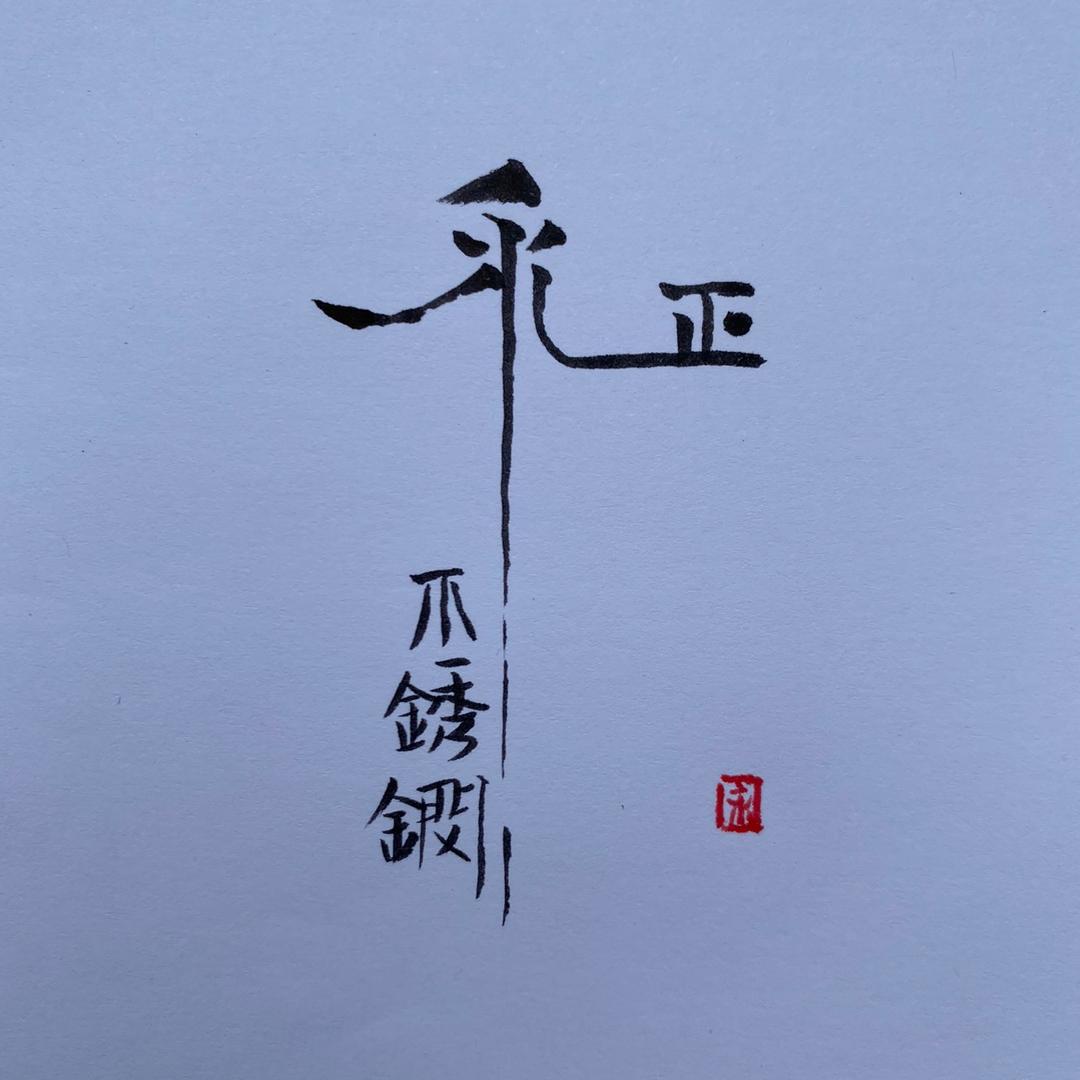 正
不銹鋼